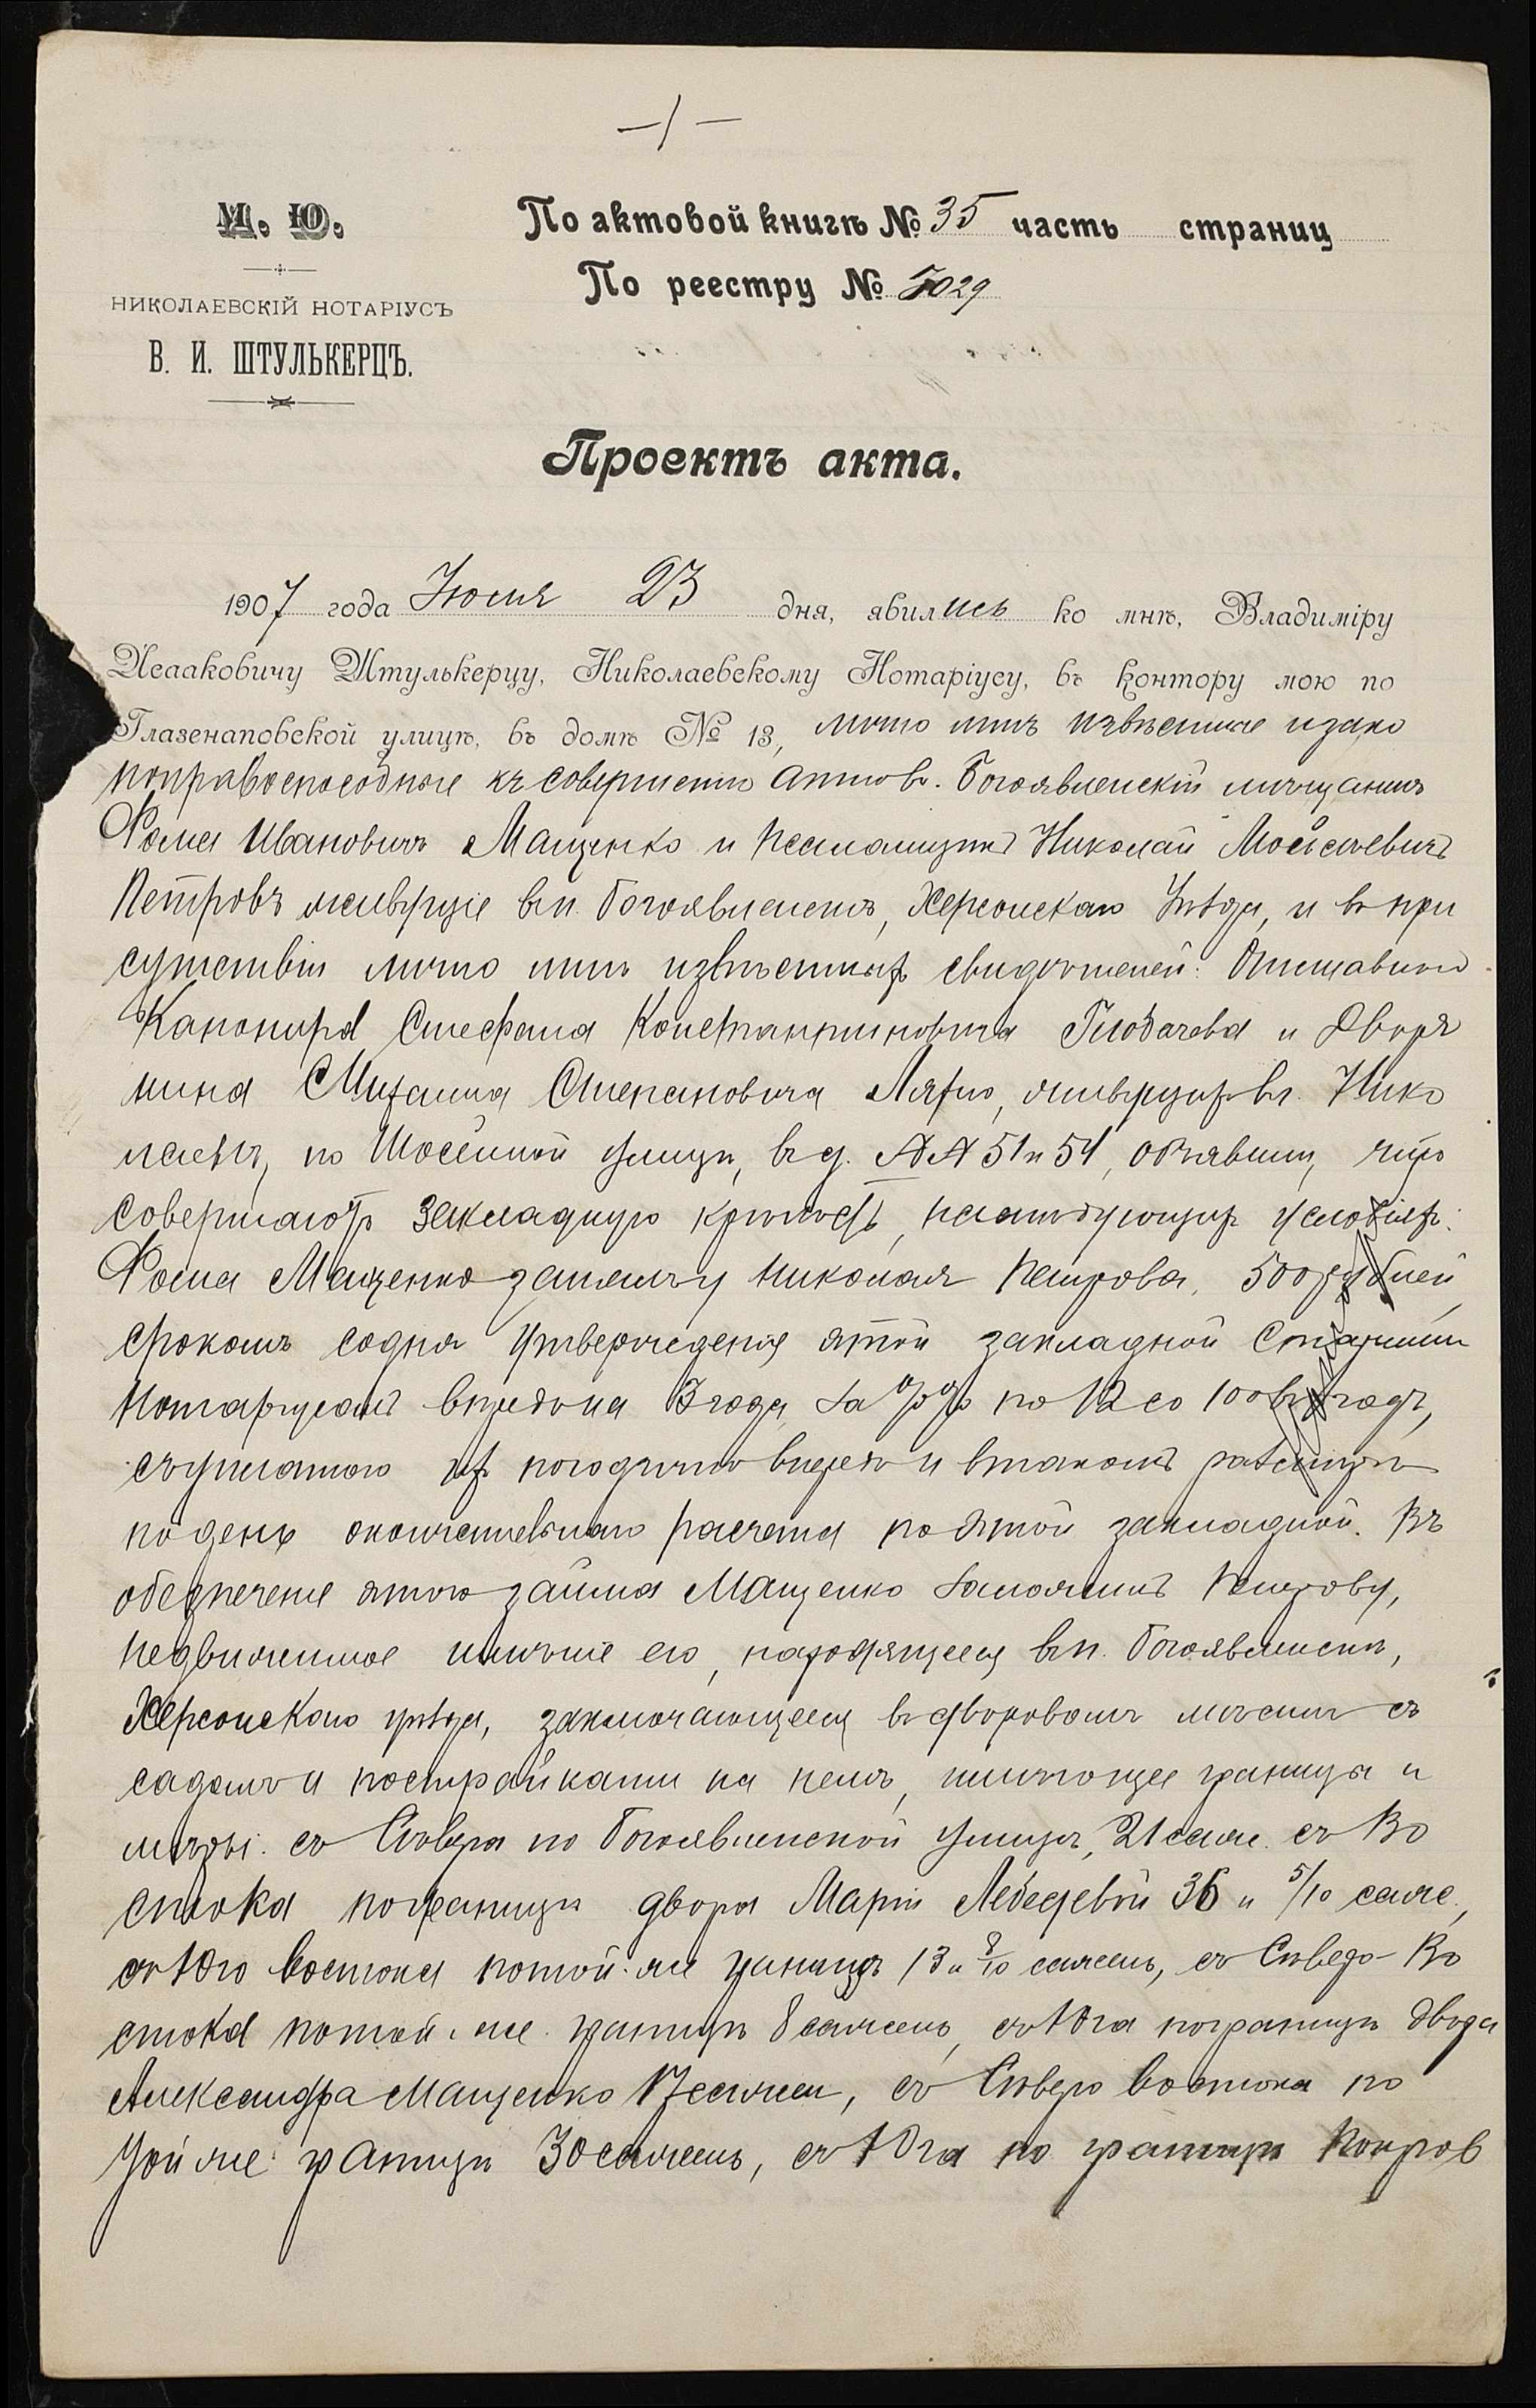 —1—
М. Ю.
По актовой книгѣ № 35 часть страниц
НИКОЛАЕВСКІЙ НОТАРІУСЪ
По реестру № 5029
В. И. ШТУЛЬКЕРЦЪ.
Проектъ акта.
1907 года Іюня 23 дня, явились ко мнѣ, Владиміру
Исааковичу Штулькерцу, Николаевскому Нотаріусу, въ контору мою по
Глазенаповской улицѣ, въ домѣ № 13, лично мнѣ извѣстные и зако
ноправоспособные къ совершенію актовъ. Богоявленскій мѣщанинъ
Фома Ивановичъ Мащенко и Николай Моисѣевичъ
Петровъ живущіе въ п. Богоявленскѣ, Херсонскаго Уѣзда, и въ при
сутствіи лично мнѣ извѣстныхъ свидѣтелей: Отставного
Канонира Стефана Константиновича и Дворя
нина Михаила Степановича живущихъ въ г. Нико
лаевѣ, по Шоссейной улицѣ, въ д. №№ 51 и 54, объявили, что
совершаютъ закладную крѣпость, на слѣдующихъ условіяхъ:
Фома Мащенко занялъ у Николая Петрова, 500 рублей,
срокомъ со дня утвержденія этой закладной Старшимъ
Нотаріусомъ впредь на 3 года, за %% по 12 со 100 въ годъ,
съ уплатою ихъ погодично впередъ и въ такомъ размѣрѣ
по день окончательнаго расчета по этой закладной. Въ
обезпеченіе этого займа Мащенко заложилъ Петрову,
недвижимое имѣніе его, находящееся въ п. Богоявленскѣ,
Херсонскаго уѣзда, заключающееся въ дворовомъ мѣстѣ съ
садомъ и постройками на немъ, имѣющее границы и
мѣры: съ Сѣвера по Богоявленской улицѣ, 21 саж. съ Во
стока по границѣ двора Маріи Лебедевой 36 и 5/10 саж.,
съ Юго Востока по той-же границѣ 13 и 8/10 сажень, съ Сѣверо-Во
стока по той-же границѣ 8 сажень, съ Юга по границѣ двора
Александра Мащенко 17 сажен, съ Сѣверо Востока по
той же границѣ 30 сажень, съ Юга по границѣ Покров